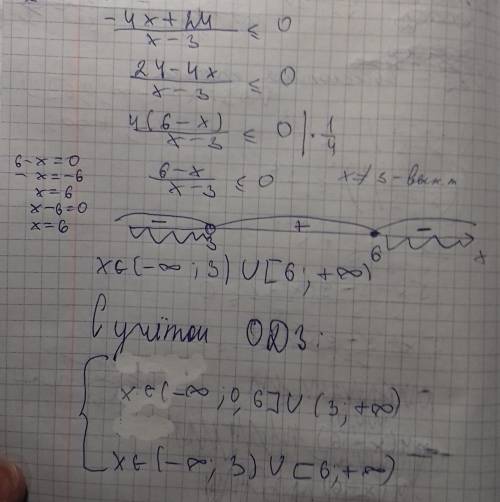 (-4x+24)/(x-3) ≤ 0
(24-4x)/(x-3) ≤ 0
4(6-x)/(x-3) ≤ 0 | · 1/4
6-x=0
-x=-6
x=6
x-6=0
x=6
(6-x)/(x-3) ≤ 0
x≠3 - вып.
- + -
3 6 x
x∈(-∞; 3) ∪ [6; +∞)
С учётом ОДЗ:
x∈(-∞; 0,6] ∪ (3; +∞)
x∈(-∞; 3) ∪ [6; +∞)